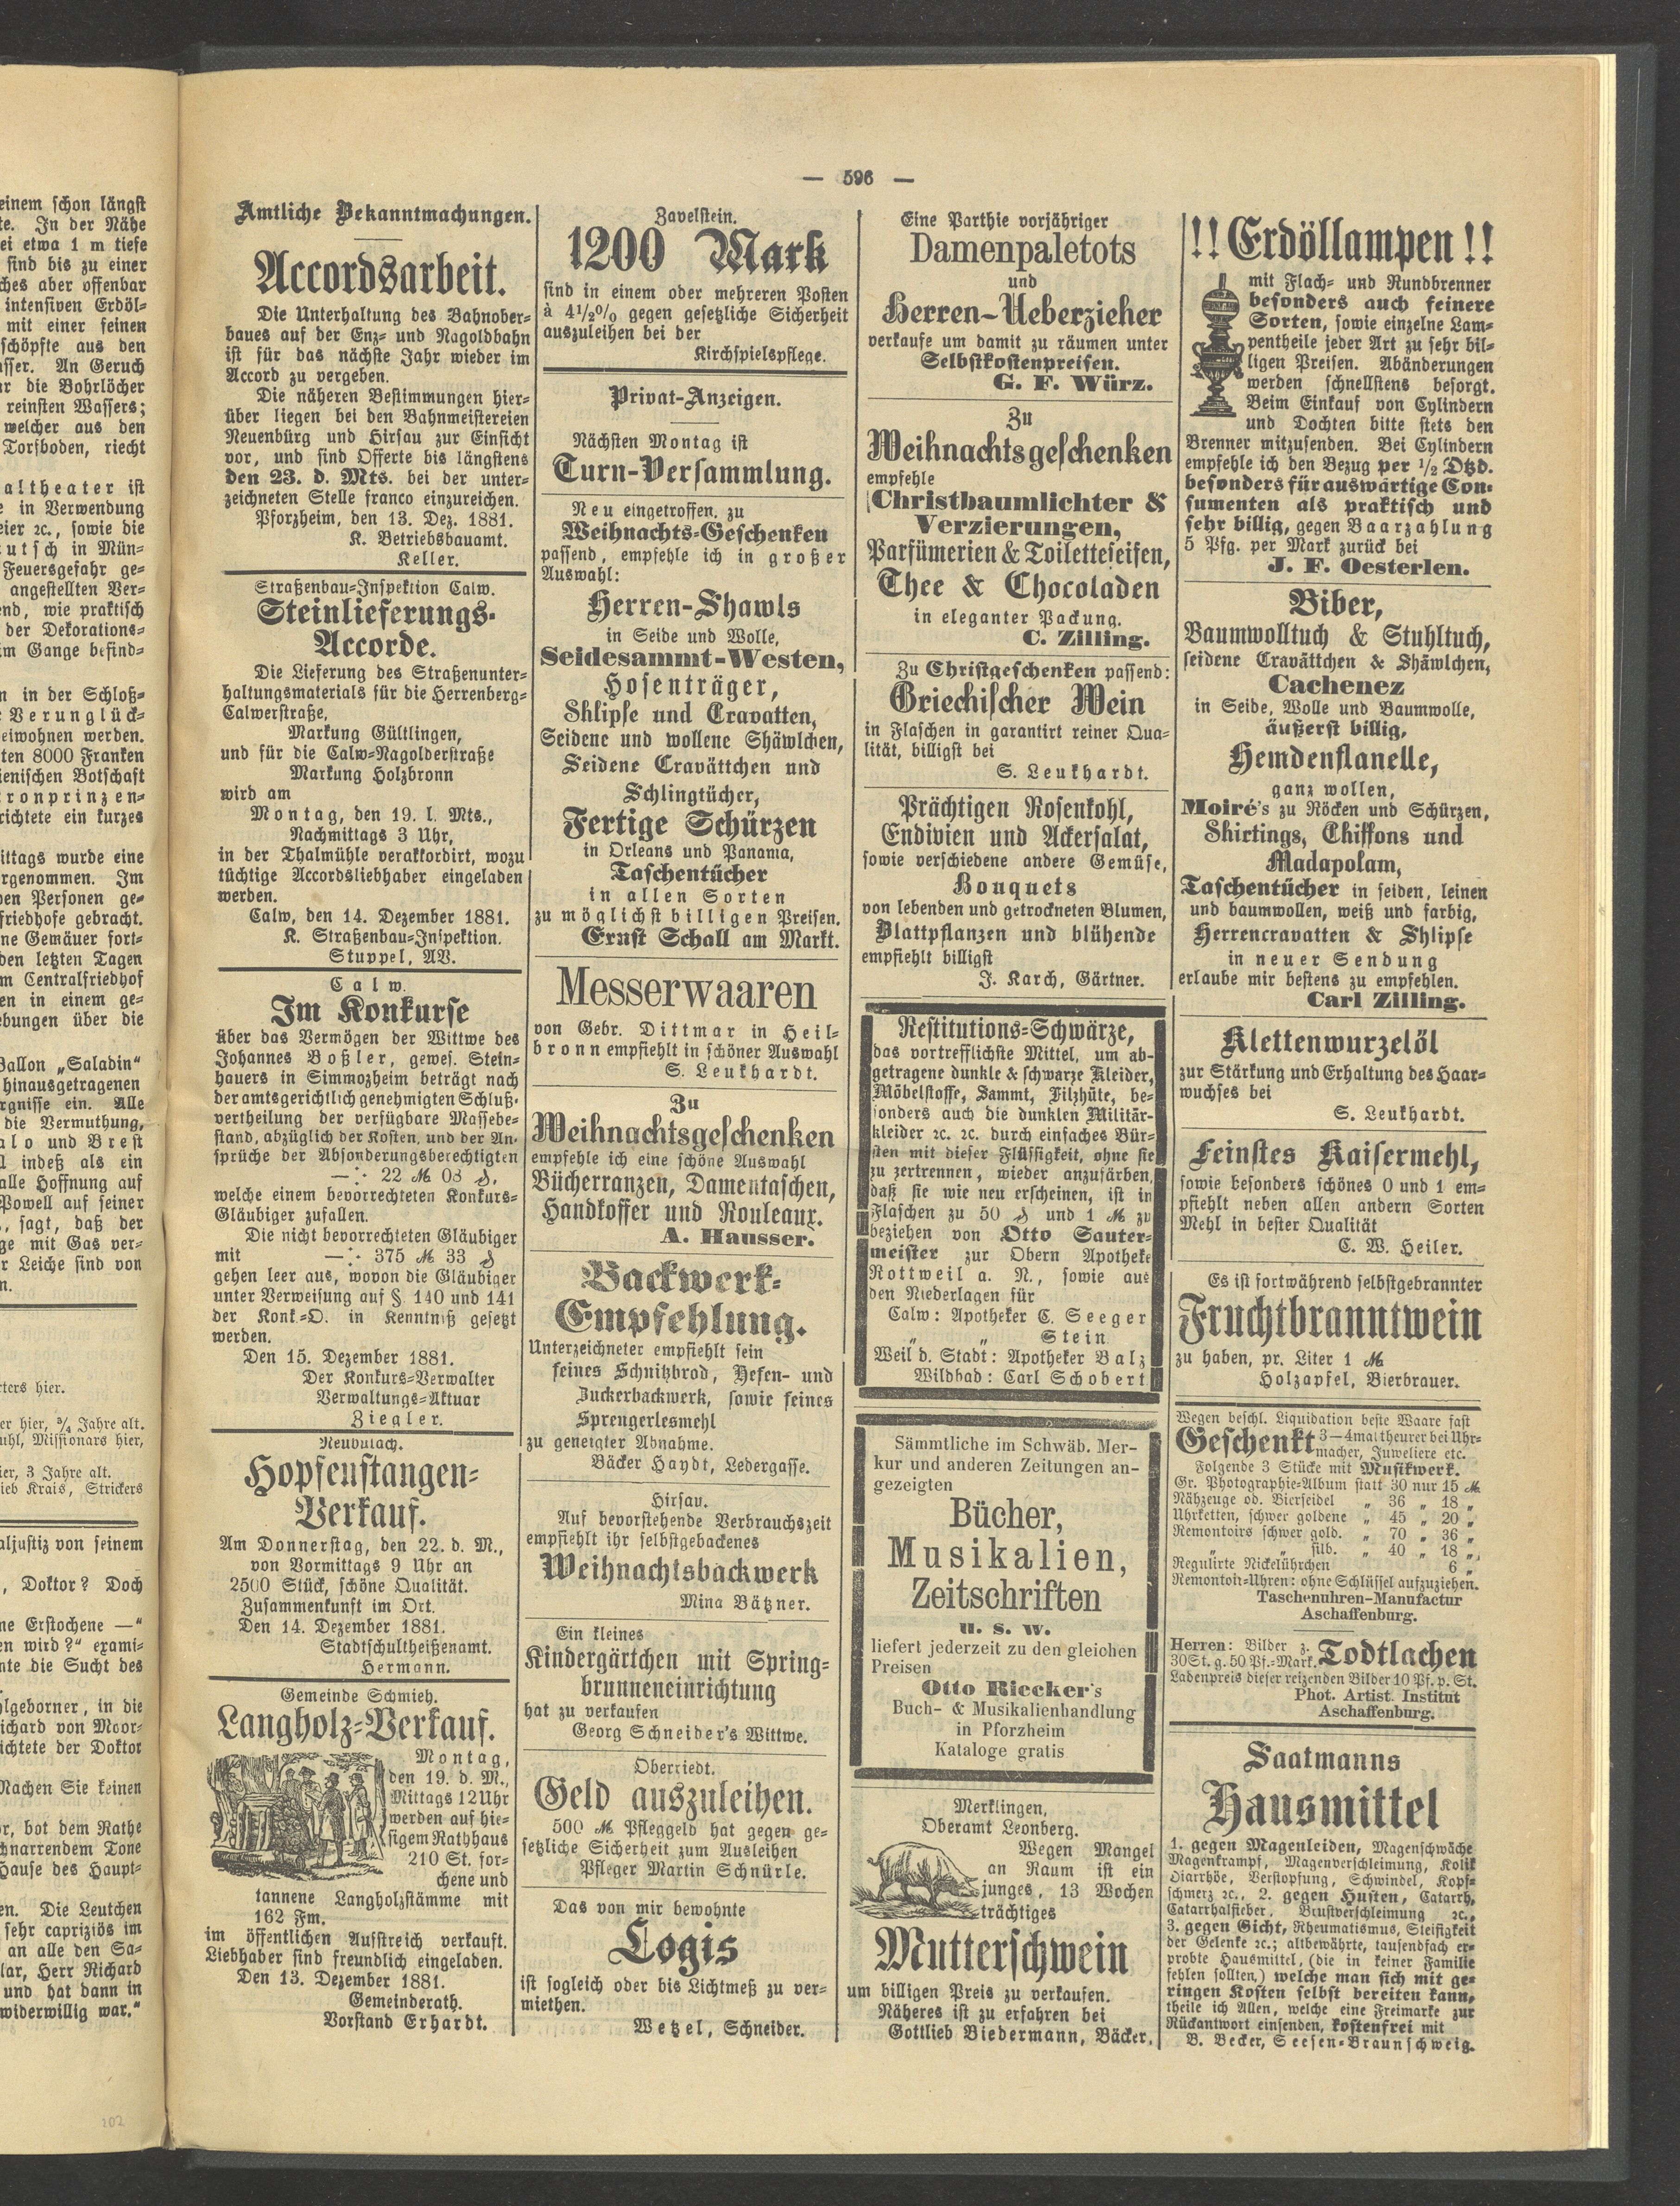 einem schon längst
te. In der Nähe
ei etwa 1 m tiefe
sind bis zu einer
ches aber offenbar
intensiven Erdöl-
mit einer feinen
schöpfte aus den
asser. An Geruch
ar die Bohrlöcher
reinsten Wassers;
welcher aus den
Torfboden, riecht
altheater ist
e in Verwendung
eier ꝛc., sowie die
eutsch in Mün-
Feuersgefahr ge-
angestellten Ver-
end, wie praktisch
der Dekorations-
im Gange befind-
n in der Schloß-
Verunglück-
eiwohnen werden.
ten 8000 Franken
ienischen Botschaft
ronprinzen-
richtete ein kurzes
ittags wurde eine
rgenommen. Im
ben Personen ge-
friedhofe gebracht.
ne Gemäuer fort-
den letzten Tagen
m Centralfriedhof
en in einem ge-
ebungen über die
Ballon „Saladin“
hinausgetragenen
rgnisse ein. Alle
die Vermuthung,
alo und Brest
l indeß als ein
alle Hoffnung auf
Powell auf seiner
., sagt, daß der
ge mit Gas ver-
r Leiche sind von
n.
rters hier.
er hier, ¾ Jahre alt.
uhl, Missionars hier,
ier, 3 Jahre alt.
ieb Krais, Strickers
aljustiz von seinem
, Doktor? Doch
ne Erstochene —“
en wird?“ exami-
nte die Sucht des
hlgeborner, in die
ichard von Moor-
ichtete der Doktor
Machen Sie keinen
or, bot dem Rathe
chnarrendem Tone
Hause des Haupt-
en. Die Leutchen
sehr capriziös im
an alle den Sa-
lar, Herr Richard
und hat dann in
widerwillig war.“
102
— 596 —
Amtliche Bekanntmachungen.
Accordsarbeit.
Die Unterhaltung des Bahnober-
baues auf der Enz- und Nagoldbahn
ist für das nächste Jahr wieder im
Accord zu vergeben.
Die näheren Bestimmungen hier-
über liegen bei den Bahnmeistereien
Neuenbürg und Hirsau zur Einsicht
vor, und sind Offerte bis längstens
den 23. d. Mts. bei der unter-
zeichneten Stelle franco einzureichen.
Pforzheim, den 13. Dez. 1881.
K. Betriebsbauamt.
Keller.
Straßenbau-Inspektion Calw.
Steinlieferungs-
Accorde.
Die Lieferung des Straßenunter-
haltungsmaterials für die Herrenberg-
Calwerstraße,
Markung Gültlingen,
und für die Calw-Nagolderstraße
Markung Holzbronn
wird am
Montag, den 19. l. Mts.,
Nachmittags 3 Uhr,
in der Thalmühle verakkordirt, wozu
tüchtige Accordsliebhaber eingeladen
werden.
Calw, den 14. Dezember 1881.
K. Straßenbau-Inspektion.
Stuppel, AV.
Calw.
Im Konkurse
über das Vermögen der Wittwe des
Johannes Boßler, gewes. Stein-
hauers in Simmozheim beträgt nach
der amtsgerichtlich genehmigten Schluß-
vertheilung der verfügbare Massebe-
stand, abzüglich der Kosten, und der An-
sprüche der Absonderungsberechtigten
—: 22 ℳ 08 ₰,
welche einem bevorrechteten Konkurs-
Gläubiger zufallen.
Die nicht bevorrechteten Gläubiger
mit —: 375 ℳ 33 ₰
gehen leer aus, wovon die Gläubiger
unter Verweisung auf § 140 und 141
der Konk-O. in Kenntniß gesetzt
werden.
Den 15. Dezember 1881.
Der Konkurs-Verwalter
Verwaltungs-Aktuar
Ziegler.
Neubulach.
Hopfenstangen-
Verkauf.
Am Donnerstag, den 22. d. M.,
von Vormittags 9 Uhr an
2500 Stück, schöne Qualität.
Zusammenkunft im Ort.
Den 14. Dezember 1881.
Stadtschultheißenamt.
Hermann.
Gemeinde Schmieh.
Langholz-Verkauf.
Montag,
den 19. d. M.,
Mittags 12 Uhr
werden auf hie-
sigem Rathhaus
210 St. for-
chene und
tannene Langholzstämme mit
162 Fm.
im öffentlichen Aufstreich verkauft.
Liebhaber sind freundlich eingeladen.
Den 13. Dezember 1881.
Gemeinderath.
Vorstand Erhardt.
Zavelstein.
1200 Mark
sind in einem oder mehreren Posten
à 4½% gegen gesetzliche Sicherheit
auszuleihen bei der
Kirchspielspflege.
Privat-Anzeigen.
Nächsten Montag ist
Turn-Versammlung.
Neu eingetroffen, zu
Weihnachts-Geschenken
passend, empfehle ich in großer
Auswahl:
Herren-Shawls
in Seide und Wolle,
Seidesammt-Westen,
Hosenträger,
Shlipse und Cravatten,
Seidene und wollene Shäwlchen,
Seidene Cravättchen und
Schlingtücher,
Fertige Schürzen
in Orleans und Panama,
Taschentücher
in allen Sorten
zu möglichst billigen Preisen.
Ernst Schall am Markt.
Messerwaaren
von Gebr. Dittmar in Heil-
bronn empfiehlt in schöner Auswahl
S. Leukhardt.
Zu
Weihnachtsgeschenken
empfehle ich eine schöne Auswahl
Bücherranzen, Damentaschen,
Handkoffer und Rouleaux.
A. Hausser.
Backwerk-
Empfehlung.
Unterzeichneter empfiehlt sein
feines Schnitzbrod, Hefen- und
Zuckerbackwerk, sowie feines
Sprengerlesmehl
zu geneigter Abnahme.
Bäcker Haydt, Ledergasse.
Hirsau.
Auf bevorstehende Verbrauchszeit
empfiehlt ihr selbstgebackenes
Weihnachtsbackwerk
Mina Bätzner.
Ein kleines
Kindergärtchen mit Spring-
brunneneinrichtung
hat zu verkaufen
Georg Schneider's Wittwe.
Oberriedt.
Geld auszuleihen.
500 ℳ Pfleggeld hat gegen ge-
setzliche Sicherheit zum Ausleihen
Pfleger Martin Schnürle.
Das von mir bewohnte
Logis
ist sogleich oder bis Lichtmeß zu ver-
miethen.
Wetzel, Schneider.
Eine Parthie vorjähriger
Damenpaletots
und
Herren-Ueberzieher
verkaufe um damit zu räumen unter
Selbstkostenpreisen.
G. F. Würz.
Zu
Weihnachtsgeschenken
empfehle
Christbaumlichter &
Verzierungen,
Parfümerien & Toiletteseifen,
Thee & Chocoladen
in eleganter Packung.
C. Zilling.
Zu Christgeschenken passend:
Griechischer Wein
in Flaschen in garantirt reiner Qua-
lität, billigst bei
S. Leukhardt.
Prächtigen Rosenkohl,
Endivien und Ackersalat,
sowie verschiedene andere Gemüse,
Bouquets
von lebenden und getrockneten Blumen,
Blattpflanzen und blühende
empfiehlt billigst
J. Karch, Gärtner.
Restitutions-Schwärze,
das vortrefflichste Mittel, um ab-
getragene dunkle & schwarze Kleider,
Möbelstoffe, Sammt, Filzhüte, be-
sonders auch die dunklen Militär-
kleider ꝛc. ꝛc. durch einfaches Bür-
sten mit dieser Flüssigkeit, ohne sie
zu zertrennen, wieder anzufärben,
daß sie wie neu erscheinen, ist in
Flaschen zu 50 ₰ und 1 ℳ zu
beziehen von Otto Sauter-
meister zur Obern Apotheke
Rottweil a. N., sowie aus
den Niederlagen für
Calw: Apotheker C. Seeger
„ „ Stein
Weil d. Stadt: Apotheker Balz
Wildbad: Carl Schobert
Sämmtliche im Schwäb. Mer-
kur und anderen Zeitungen an-
gezeigten
Bücher,
Musikalien,
Zeitschriften
u. s. w.
liefert jederzeit zu den gleichen
Preisen
Otto Riecker's
Buch- & Musikalienhandlung
in Pforzheim
Kataloge gratis
Merklingen,
Oberamt Leonberg.
Wegen Mangel
an Raum ist ein
junges, 13 Wochen
trächtiges
Mutterschwein
um billigen Preis zu verkaufen.
Näheres ist zu erfahren bei
Gottlieb Biedermann, Bäcker.
!! Erdöllampen !!
mit Flach- und Rundbrenner
besonders auch feinere
Sorten, sowie einzelne Lam-
pentheile jeder Art zu sehr bil-
ligen Preisen. Abänderungen
werden schnellstens besorgt.
Beim Einkauf von Cylindern
und Dochten bitte stets den
Brenner mitzusenden. Bei Cylindern
empfehle ich den Bezug per ½ Dtzd.
besonders für auswärtige Con-
sumenten als praktisch und
sehr billig, gegen Baarzahlung
5 Pfg. per Mark zurück bei
J. F. Oesterlen.
Biber,
Baumwolltuch & Stuhltuch,
seidene Cravättchen & Shäwlchen,
Cachenez
in Seide, Wolle und Baumwolle,
äußerst billig,
Hemdenflanelle,
ganz wollen,
Moiré's zu Röcken und Schürzen,
Shirtings, Chiffons und
Madapolam,
Taschentücher in seiden, leinen
und baumwollen, weiß und farbig,
Herrencravatten & Shlipse
in neuer Sendung
erlaube mir bestens zu empfehlen.
Carl Zilling.
Klettenwurzelöl
zur Stärkung und Erhaltung des Haar-
wuchses bei
S. Leukhardt.
Feinstes Kaisermehl,
sowie besonders schönes 0 und 1 em-
pfiehlt neben allen andern Sorten
Mehl in bester Qualität
C. W. Heiler.
Es ist fortwährend selbstgebrannter
Fruchtbranntwein
zu haben, pr. Liter 1 ℳ
Holzapfel, Bierbrauer.
Wegen beschl. Liquidation beste Waare fast
Geschenkt 3—4mal theurer bei Uhr-
macher, Juweliere etc.
Folgende 3 Stücke mit Musikwerk.
Gr. Photographie-Album statt 30 nur 15 ℳ
Nähzeuge od. Bierseidel „ 36 „ 18 „
Uhrketten, schwer goldene „ 45 „ 20 „
Remontoirs schwer gold. „ 70 „ 36 „
„ „ silb. „ 40 „ 18 „
Regulirte Nickelührchen 6 „
Remontoir-Uhren: ohne Schlüssel aufzuziehen.
Taschenuhren-Manufactur
Aschaffenburg.
Herren: Bilder z. Todtlachen
30 St. g. 50 Pf.-Mark.
Ladenpreis dieser reizenden Bilder 10 Pf. p. St.
Phot. Artist. Institut
Aschaffenburg.
Saatmanns
Hausmittel
1. gegen Magenleiden, Magenschwäche
Magenkrampf, Magenverschleimung, Kolik
Diarrhöe, Verstopfung, Schwindel, Kopf-
schmerz ꝛc., 2. gegen Husten, Catarrh,
Catarrhalfieber, Brustverschleimung ꝛc.,
3. gegen Gicht, Rheumatismus, Steifigkeit
der Gelenke ꝛc.; altbewährte, tausendfach er-
probte Hausmittel, (die in keiner Familie
fehlen sollten,) welche man sich mit ge-
ringen Kosten selbst bereiten kann,
theile ich Allen, welche eine Freimarke zur
Rückantwort einsenden, kostenfrei mit
B. Becker, Seesen-Braunschweig.